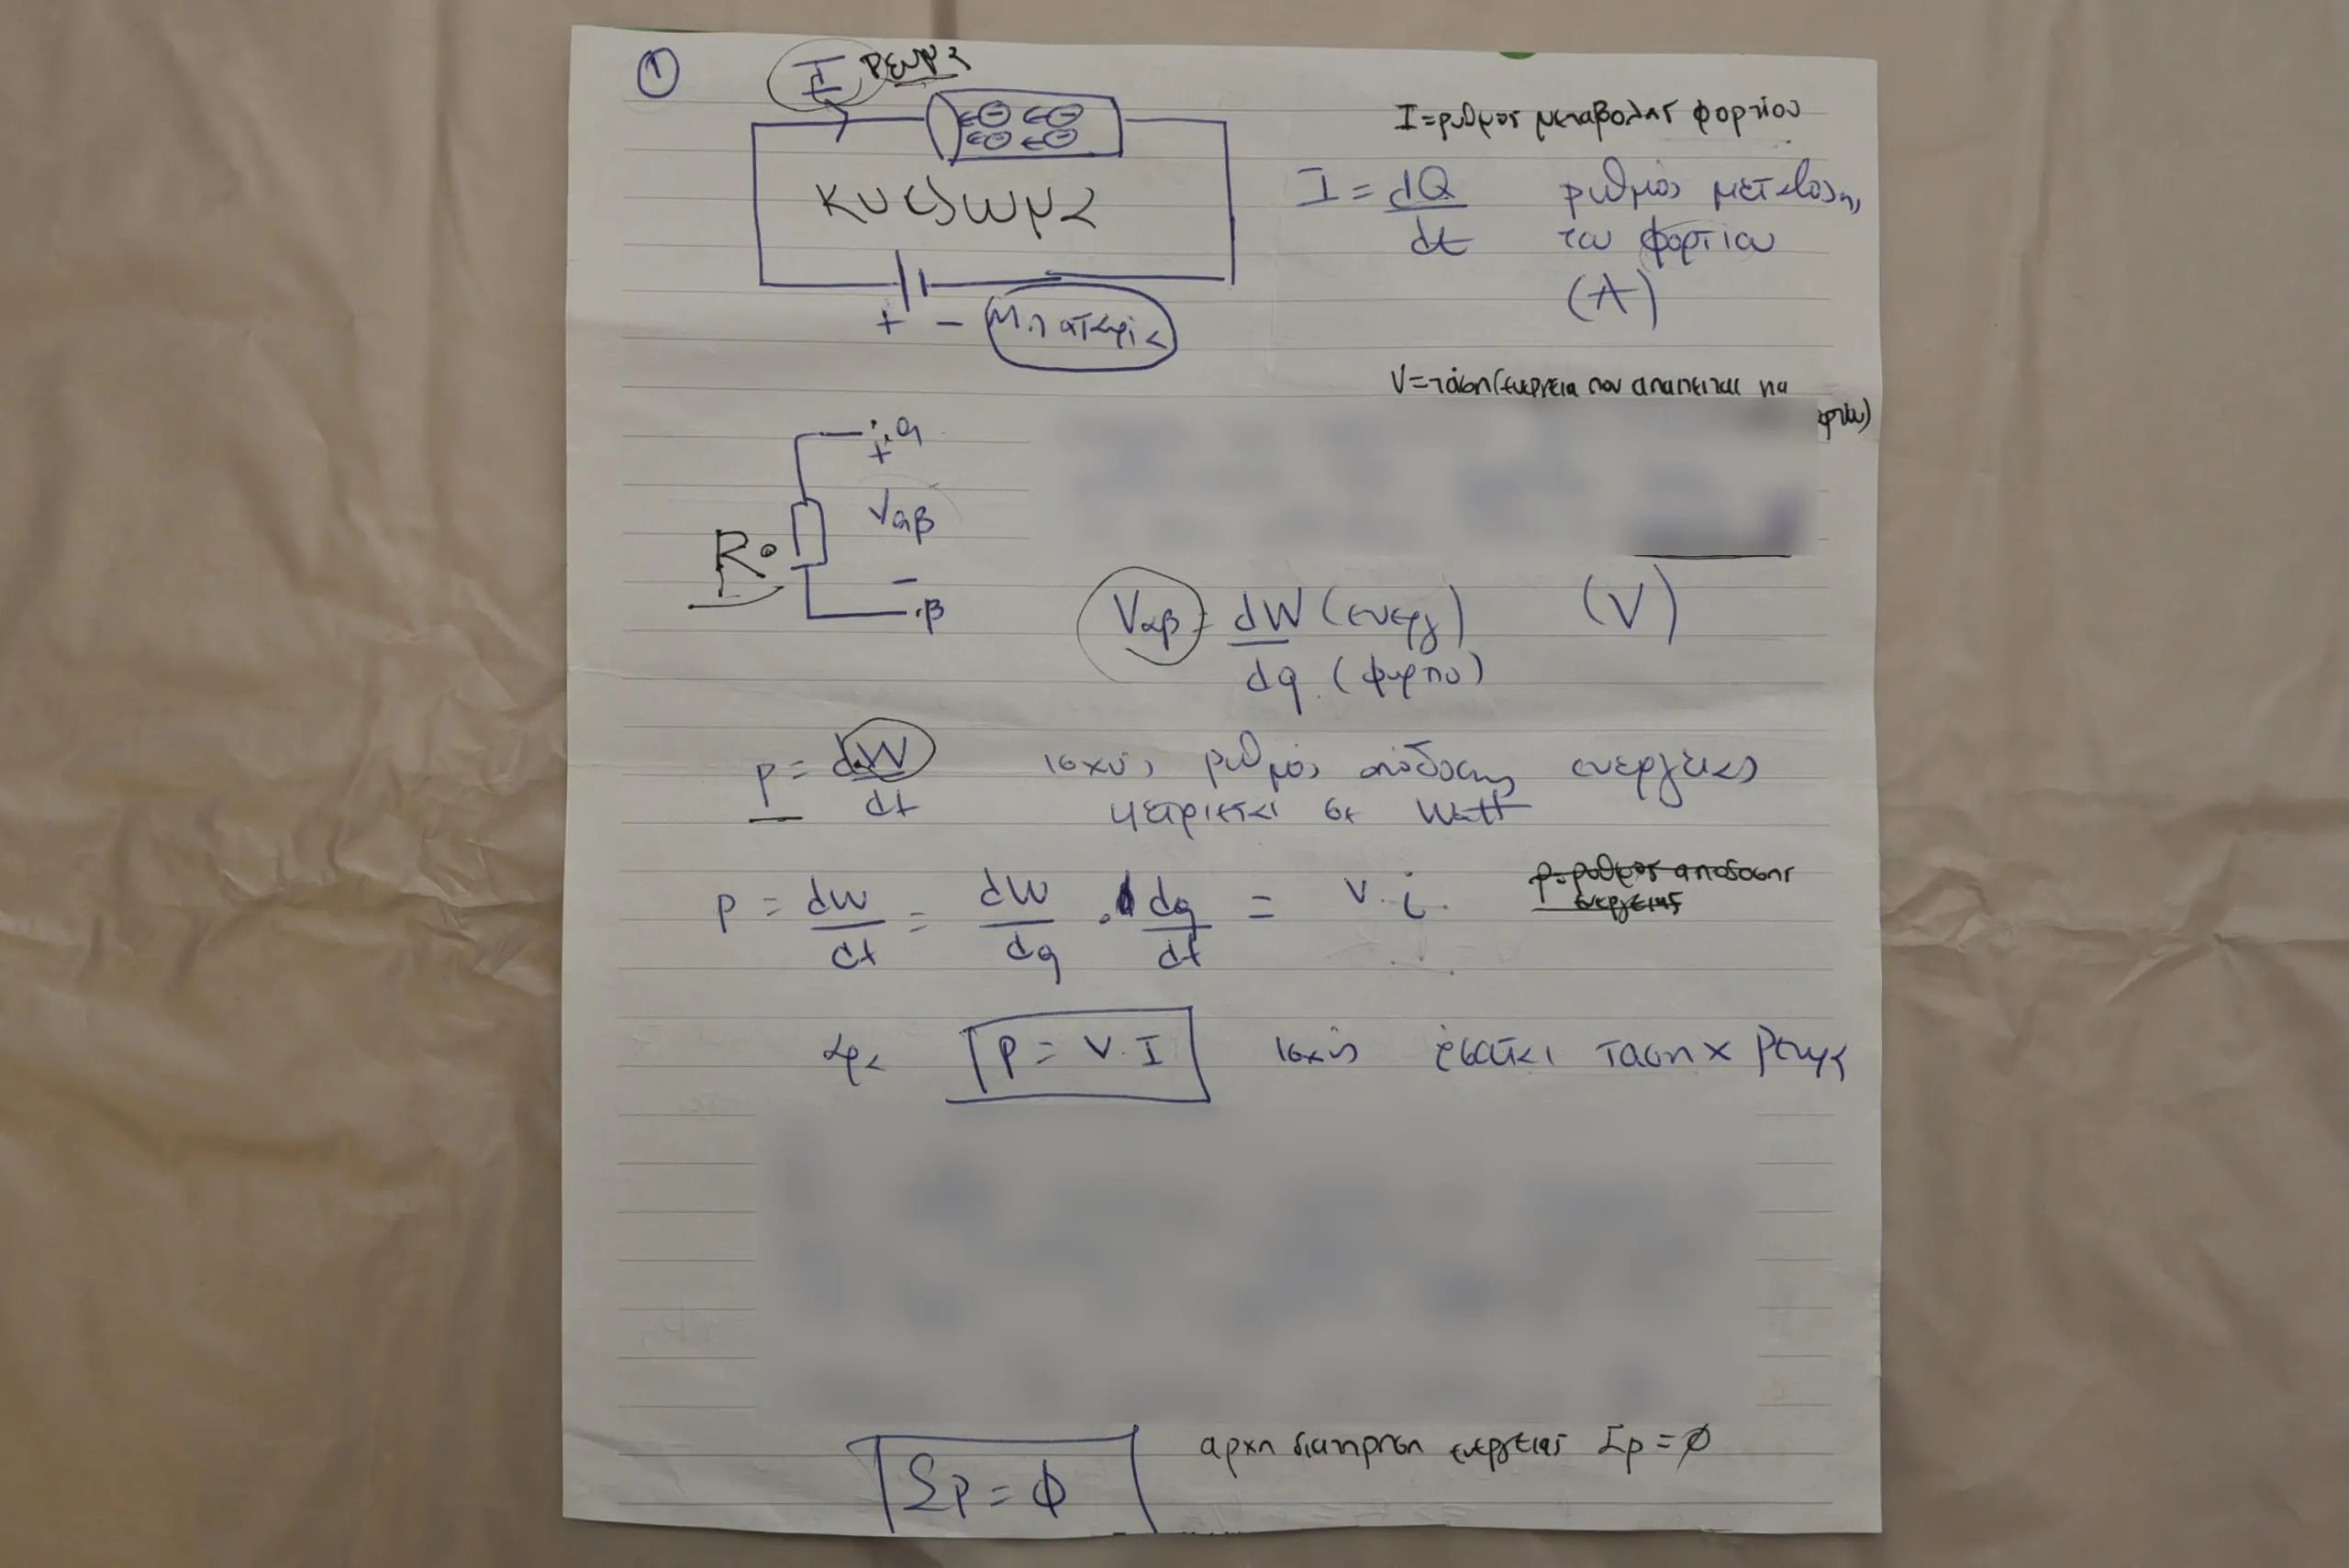 1
I ρευμα
κυκλωμα
+ - Μπαταρία
I=ρυθμος μεταβολης φορτίου
I = dQ/dt ρυθμός μεταβολης
του φορτίου
(A)
V=τάση(ενεργεια που απαιτειται να
+ α
Vαβ
R
- β
Vαβ = dW (ενεργ) (V)
dq (φορτιο)
p = dW/dt ισχύς ρυθμός απόδοσης ενεργειας
μετριεται σε Watt
p = dw/dt = dw/dq . dq/dt = v.i
p=ρυθμος αποδοσης
ενεργειας
αρα P = V.I ισχύς ισουται ταση x ρευμα
Σp = φ
αρχη διατηρηση ενεργειας Σp = φ